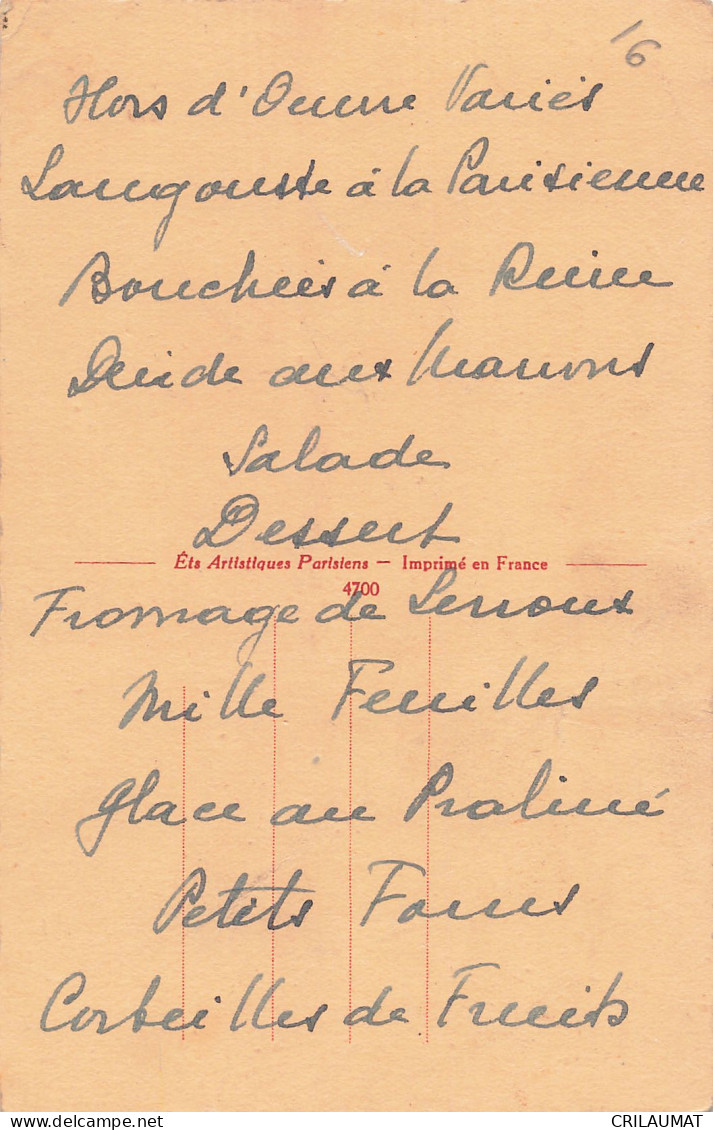 16
Hors d'Oeuvre Variés
Langouste à la Parisienne
Bouchées à la Reine
Dinde aux Marrons
Salade
Dessert
Êts Artistiques Parisiens — Imprimé en France
4700
Fromage de
Mille Feuilles
Glace au Praliné
Petits Fours
Corbeilles de Fruits
delcampe.net
CRILAUMAT